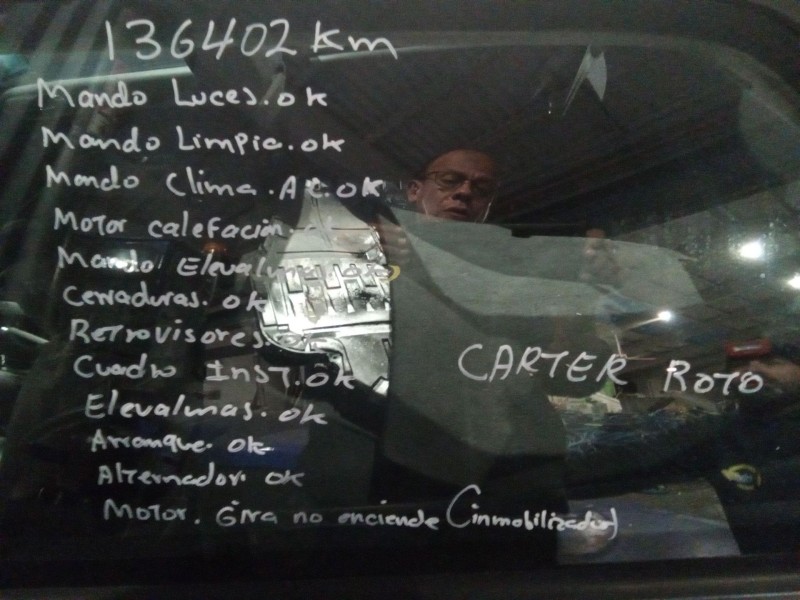 136402 Km
Mando Luces. ok
Mando Limpia. ok
Mando Clima. A C. ok
Motor calefacion.
Mando Elevalunas. ok
Cerraduras. ok
Retrovisores.
Cuadro Inst. ok
CARTER ROTO
Elevalunas. ok
Arranque. ok
Alternador. ok
Motor. Gira no enciende (inmobilizador)